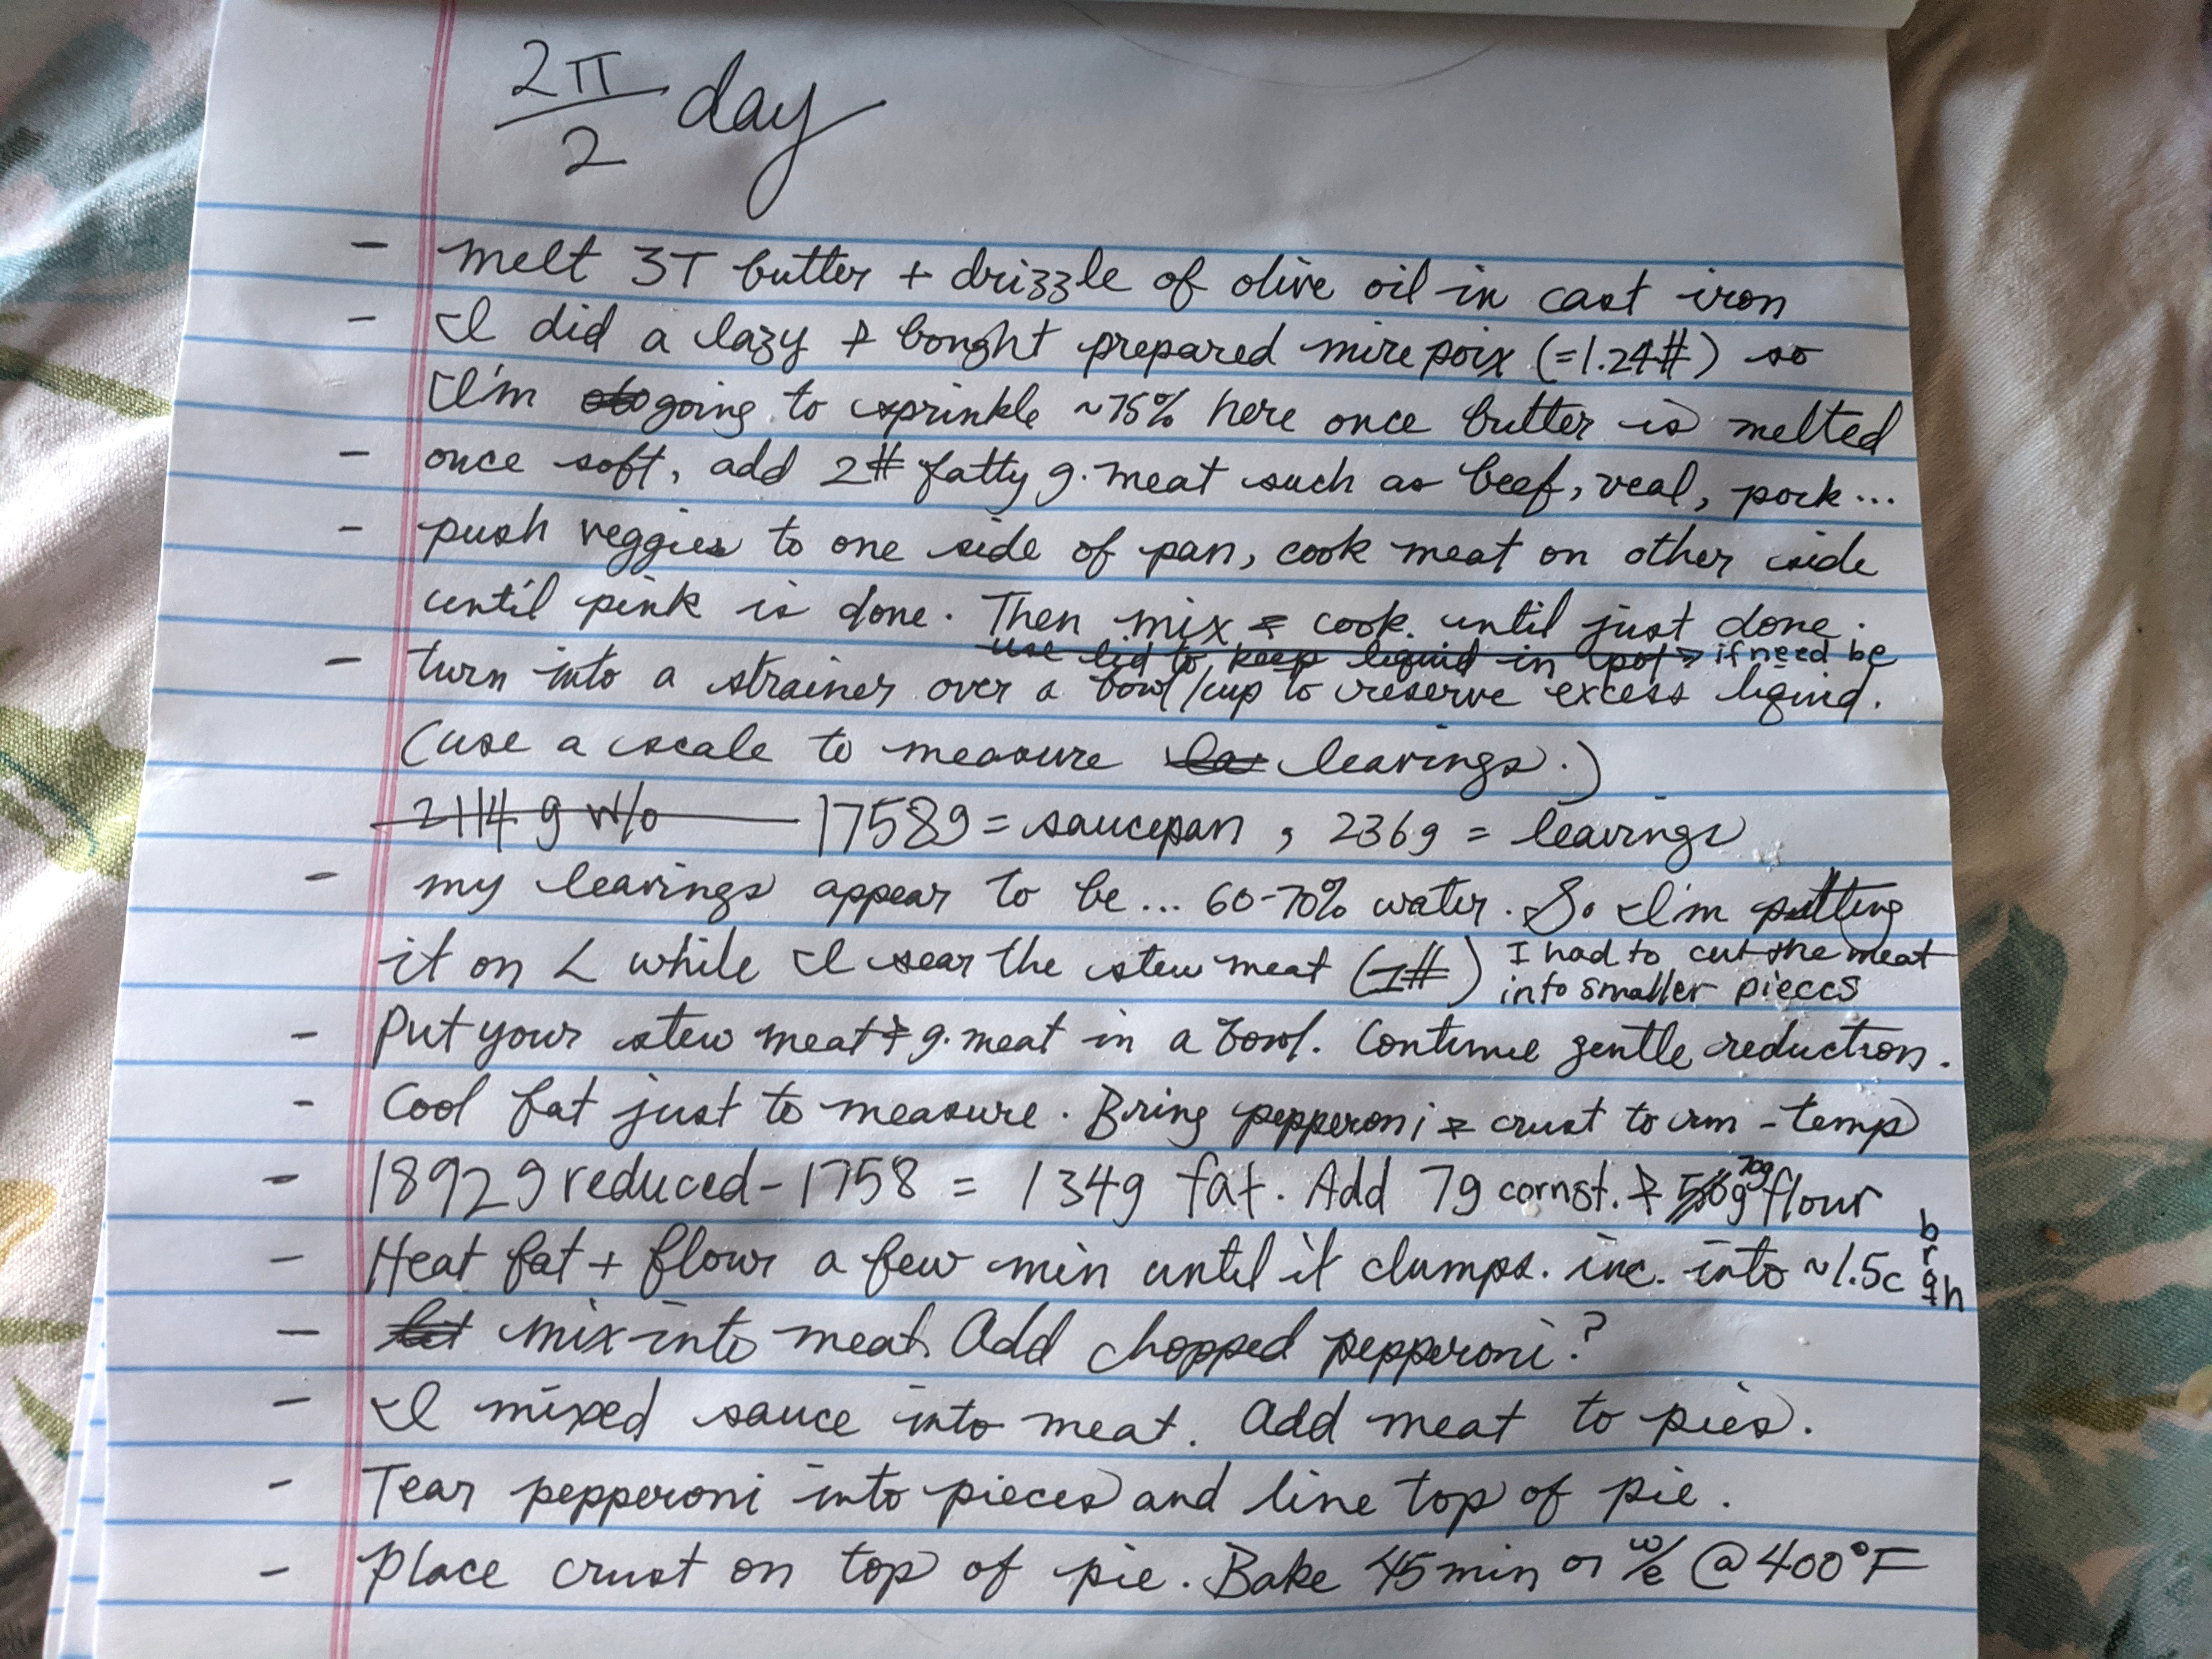 2π/2 day
- melt 3T butter + drizzle of olive oil in cast iron
- I did a lazy & bought prepared mire poix (=1.24#) so
I'm going to sprinkle ~75% here once butter is melted
- once soft, add 2# fatty g. meat such as beef, veal, pork...
- push veggies to one side of pan, cook meat on other side
until pink is done. Then mix & cook until just done.
use lid to keep liquid in pot if need be
- turn into a strainer over a bowl/cup to reserve excess liquid.
(use a scale to measure leavings.)
2114 g w/o 1758g = saucepan, 236g = leavings
- my leavings appear to be... 60-70% water. So I'm putting
it on L while I sear the stew meat (1#) I had to cut the meat
into smaller pieces
- Put your stew meat & g. meat in a bowl. Continue gentle reduction.
- Cool fat just to measure. Bring pepperoni & crust to rm-temp
- 1892g reduced - 1758 = 134g fat. Add 7g cornst. & 70g flour
- Heat fat + flour a few min until it clumps. inc. into ~1.5c broth
- mix into meat. Add chopped pepperoni?
- I mixed sauce into meat. Add meat to pies.
- Tear pepperoni into pieces and line top of pie.
- Place crust on top of pie. Bake 45 min or w/e @ 400°F